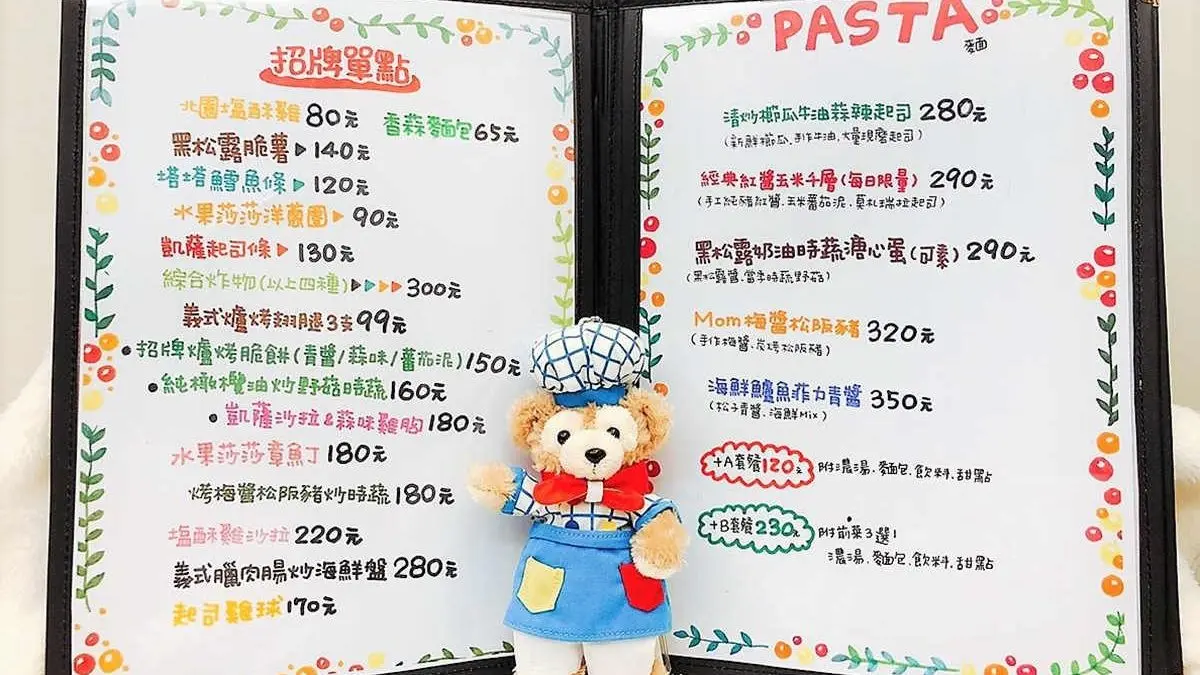 招牌單點
北園塩酥雞80元 香蒜麵包65元
黑松露脆薯▷140元
塔塔鱈魚條▷120元
水果莎莎洋蔥圈▷90元
凱薩起司條▷130元
綜合炸物(以上四種)▷▷▷▷300元
義式爐烤翅腿3支99元
•招牌爐烤脆餅(青醬/蒜味/蕃茄泥)150元
•純橄欖油炒野菇時蔬160元
•凱薩沙拉&蒜味雞胸180元
水果莎莎章魚丁180元
烤梅醬松阪豬炒時蔬180元
塩酥雞沙拉220元
義式臘肉腸炒海鮮盤280元
起司雞球170元
PASTA麵
清炒櫛瓜牛油蒜辣起司280元
(新鮮櫛瓜.手作牛油.大量現磨起司)
經典紅醬玉米千層(每日限量)290元
(手工純豬紅醬.玉米蕃茄泥.莫札瑞拉起司)
黑松露奶油時蔬溏心蛋(可素)290元
(黑松露醬.當季時蔬野菇)
Mom梅醬松阪豬320元
(手作梅醬.炭烤松阪豬)
海鮮鱸魚菲力青醬350元
(松子青醬.海鮮Mix)
+A套餐120元 附濃湯.麵包.飲料.甜點
+B套餐230元 附前菜3選1
濃湯.麵包.飲料.甜點